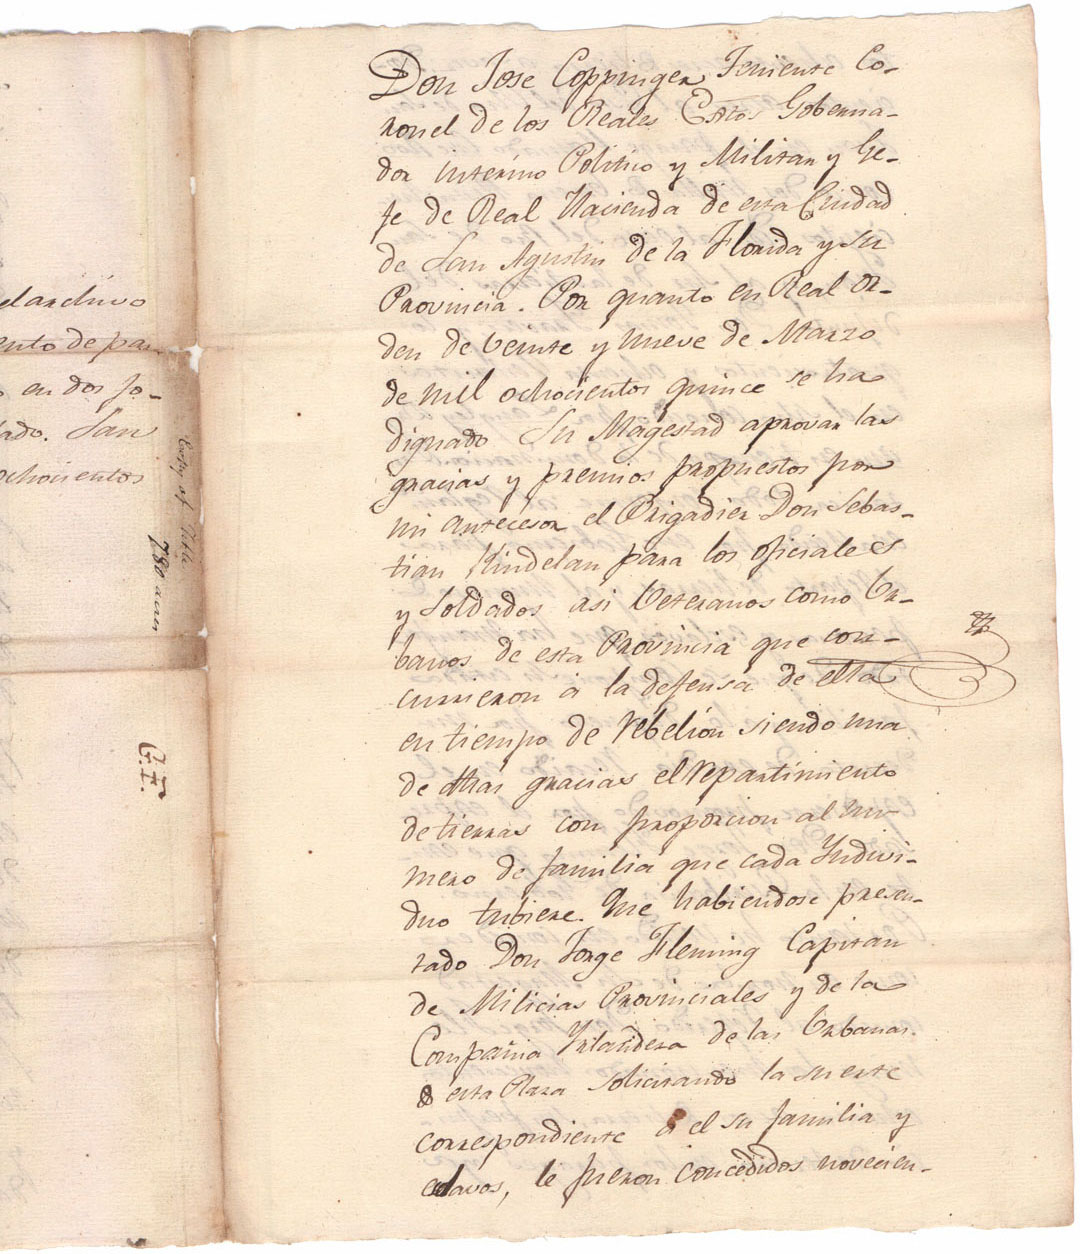 el archivo
ento de pa
en dos fo-
San
ochocientos
Copy of Title
780 acres
G. F.
Don Jose Coppinger Teniente Co-
ronel de los Reales Extos Goberna-
dor interino Politico y Militar y Ge-
fe de Real Hacienda de esta Ciudad
de San Agustin de la Florida y su
Provincia. Por quanto en Real Or-
den de veinte y nueve de Marzo
de mil ochocientos quince se ha
dignado Su Magestad aprovar las
gracias y premios propuestos por
mi antecesor el Brigadier Don Sebas-
tian Kindelan para los oficiales
y Soldados asi Veteranos como Ur-
banos de esta Provincia que con-
currieron á la defensa de ella
en tiempo de rebelion siendo una
de dhas gracias el repartimiento
de tierras con proporcion al nu-
mero de familia que cada Yndivi-
duo tubiere. Que habiendose presen-
tado Don Jorge Fleming Capitan
de Milicias Provinciales y de la
Compañia Yrlandera de las Urbanas
de esta Plaza solicitando la suerte
correspondiente á el su familia y
esclavos, le fueron concedidos novecien-